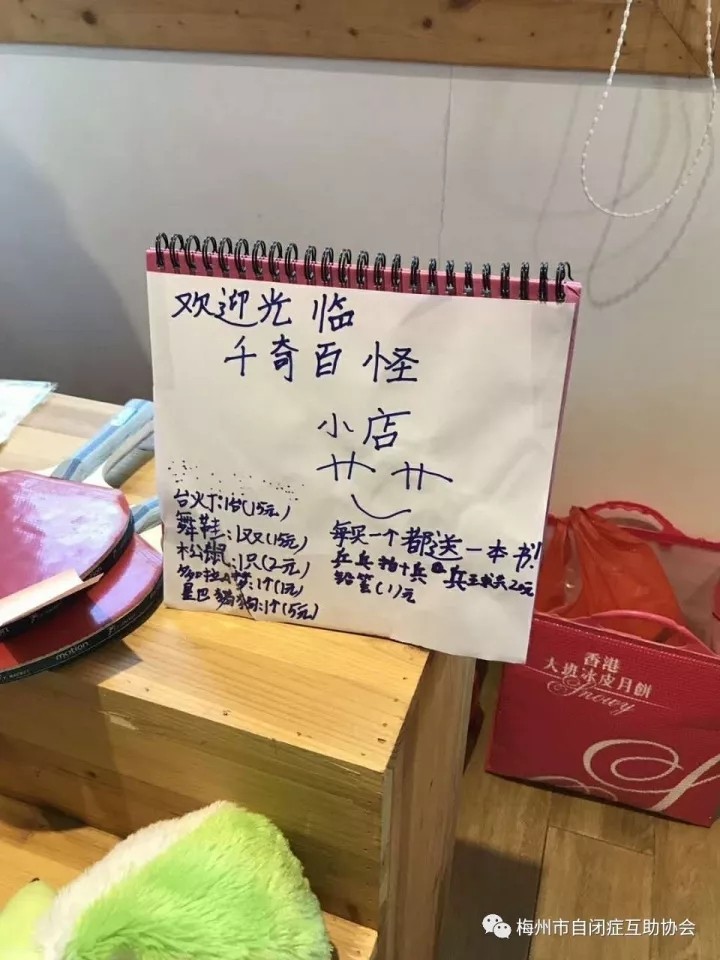 欢迎光临
千奇百怪
小店
台火丁:1台(15元)
舞鞋:1双(15元)
松鼠:1只(2元)
多啦A梦:1个(1元)
星巴 狗:1个(5元)
每买一个都送一本书!
乒乓拍+乒乓球20元
铅笔(1)元
motion
香港
大班冰皮月餅
Snowy
梅州市自闭症互助协会